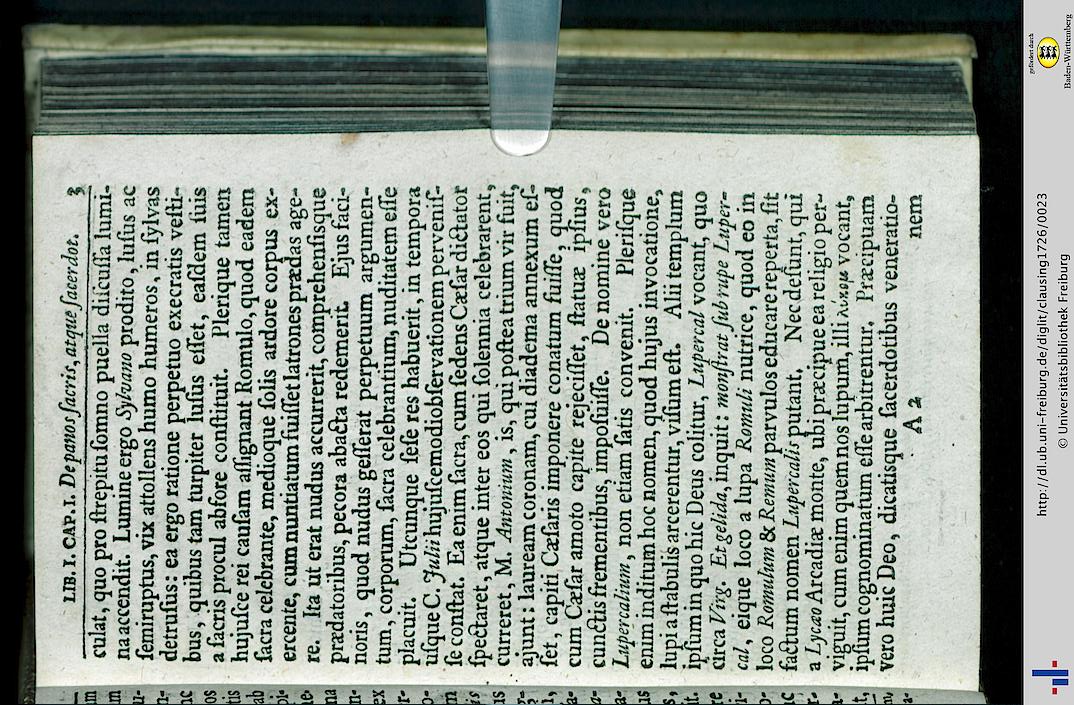 LIB. I. CAP. I. De panos sacris, atque sacerdot. 3
culat, quo pro strepitu somno puella discussa lumi-
na accendit. Lumine ergo Sylvano prodito, lusus ac
semiruptus, vix attollens humo humeros, in sylvas
detrusus: ea ergo ratione perpetuo execratis vesti-
bus, quibus tam turpiter lusus esset, easdem suis
a sacris procul absore constituit. Plerique tamen
hujusce rei causam assignant Romulo, quod eadem
sacra celebrante, medioque solis ardore corpus ex-
ercente, cum nuntiatum fuisset latrones prædas age-
re. Ita ut erat nudus accurrerit, comprehensisque
prædatoribus, pecora abacta redemerit. Ejus faci-
noris, quod nudus gesserat perpetum argumen-
tum, corporum, sacra celebrantium, nuditatem esse
placuit. Utcunque sese res habuerit, in tempora
usque C. Julii hujuscemodi observationem pervenis-
se constat. Ea enim sacra, cum sedens Cæsar dictator
spectaret, atque inter eos qui solennia celebrarent,
curreret, M. Antonium, is, qui postea trium vir fuit,
ajunt: lauream coronam, cui diadema annexum es-
set, capiti Cæsaris imponere conatum fuisse, quod
cum Cæsar amoto capite rejecisset, statuæ ipsius,
cunctis frementibus, imposuisse. De nomine vero
Lupercalium, non etiam satis convenit. Plerisque
enim inditum hoc nomen, quod hujus invocatione,
lupi a stabulis arcerentur, visum est. Alii templum
ipsum in quo hic Deus colitur, Lupercal vocant, quo
circa Virg. Et gelida, inquit: monstrat sub rupe Luper-
cal, eique loco a lupa Romuli nutrice, quod eo in
loco Romulum & Remum parvulos educare reperta, sit
factum nomen Lupercalis putant. Nec desunt, qui
a Lycæo Arcadiæ monte, ubi præcipue ea religio per-
viguit, cum enim quem nos lupum, illi λύκου vocant,
ipsum cognominatum esse arbitrentur. Præcipuam
vero huic Deo, dicatisque sacerdotibus veneratio-
A 2 nem
http://dl.ub.uni-freiburg.de/diglit/clausing1726/0023
© Universitätsbibliothek Freiburg
gefördert durch
Baden-Württemberg